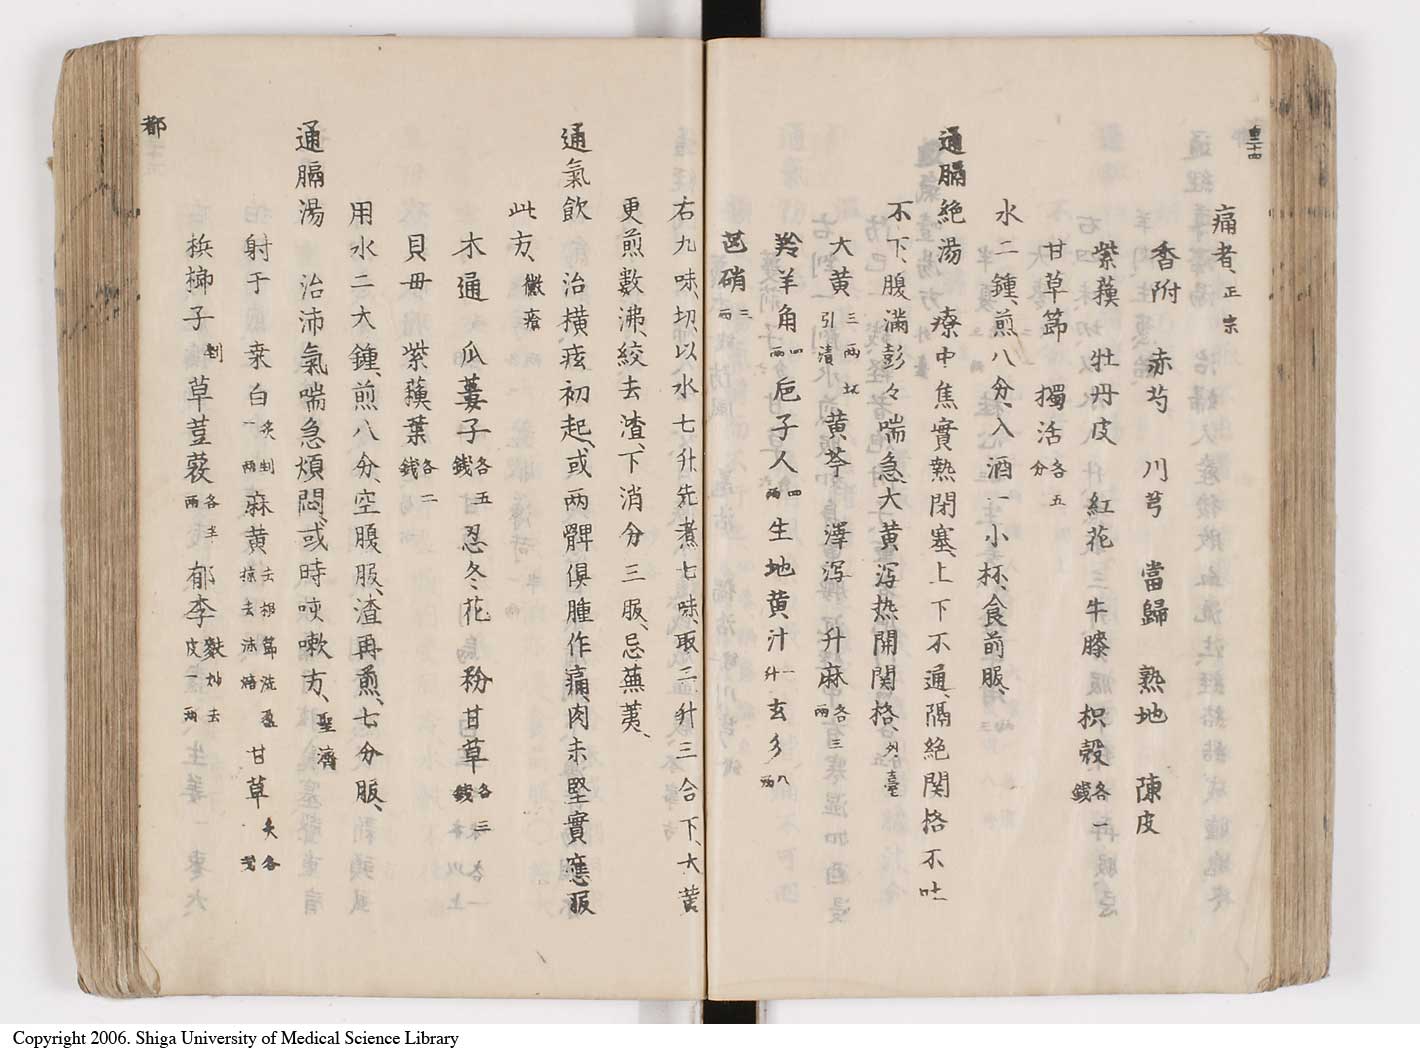 痛者、正宗
香附 赤芍 川芎 當歸 熟地 陳皮
紫蘓 牡丹皮 紅花 三牛膝 枳殼各一錢
甘草節 獨活各五分
水二鍾、煎八分、入酒一小杯、食前服、
通膈絶湯 療中焦實熱閉塞、上下不通、隔絶関格不吐
不下、腹滿彭々喘急、大黄瀉热開関格、外臺
大黄三兩 黄芩 澤瀉 升麻各三兩
羚羊角四兩 巵子人四兩 生地黄汁一升 玄參八兩
芒硝三兩
右九味、切、以水七升先煮七味、取二升三合下、大黄
更煎數沸、絞去渣、下消分三服、忌蕪荑、
通氣飲 治横痃初起、或两髀俱腫作痛、肉未堅實應服
此方、黴瘡
木通 瓜蔞子各五錢 忍冬花 粉甘草各三錢
貝母 紫蘓葉各二錢
用水二大鍾、煎八分、空腹服、渣再煎、七分服、
通膈湯 治沛氣喘急煩悶、或時咳嗽方、聖濟
射于 桒白炙剉一兩 麻黄去根節 甘草炙各
梹榔子剉 草荳蔲各半兩 郁李
都